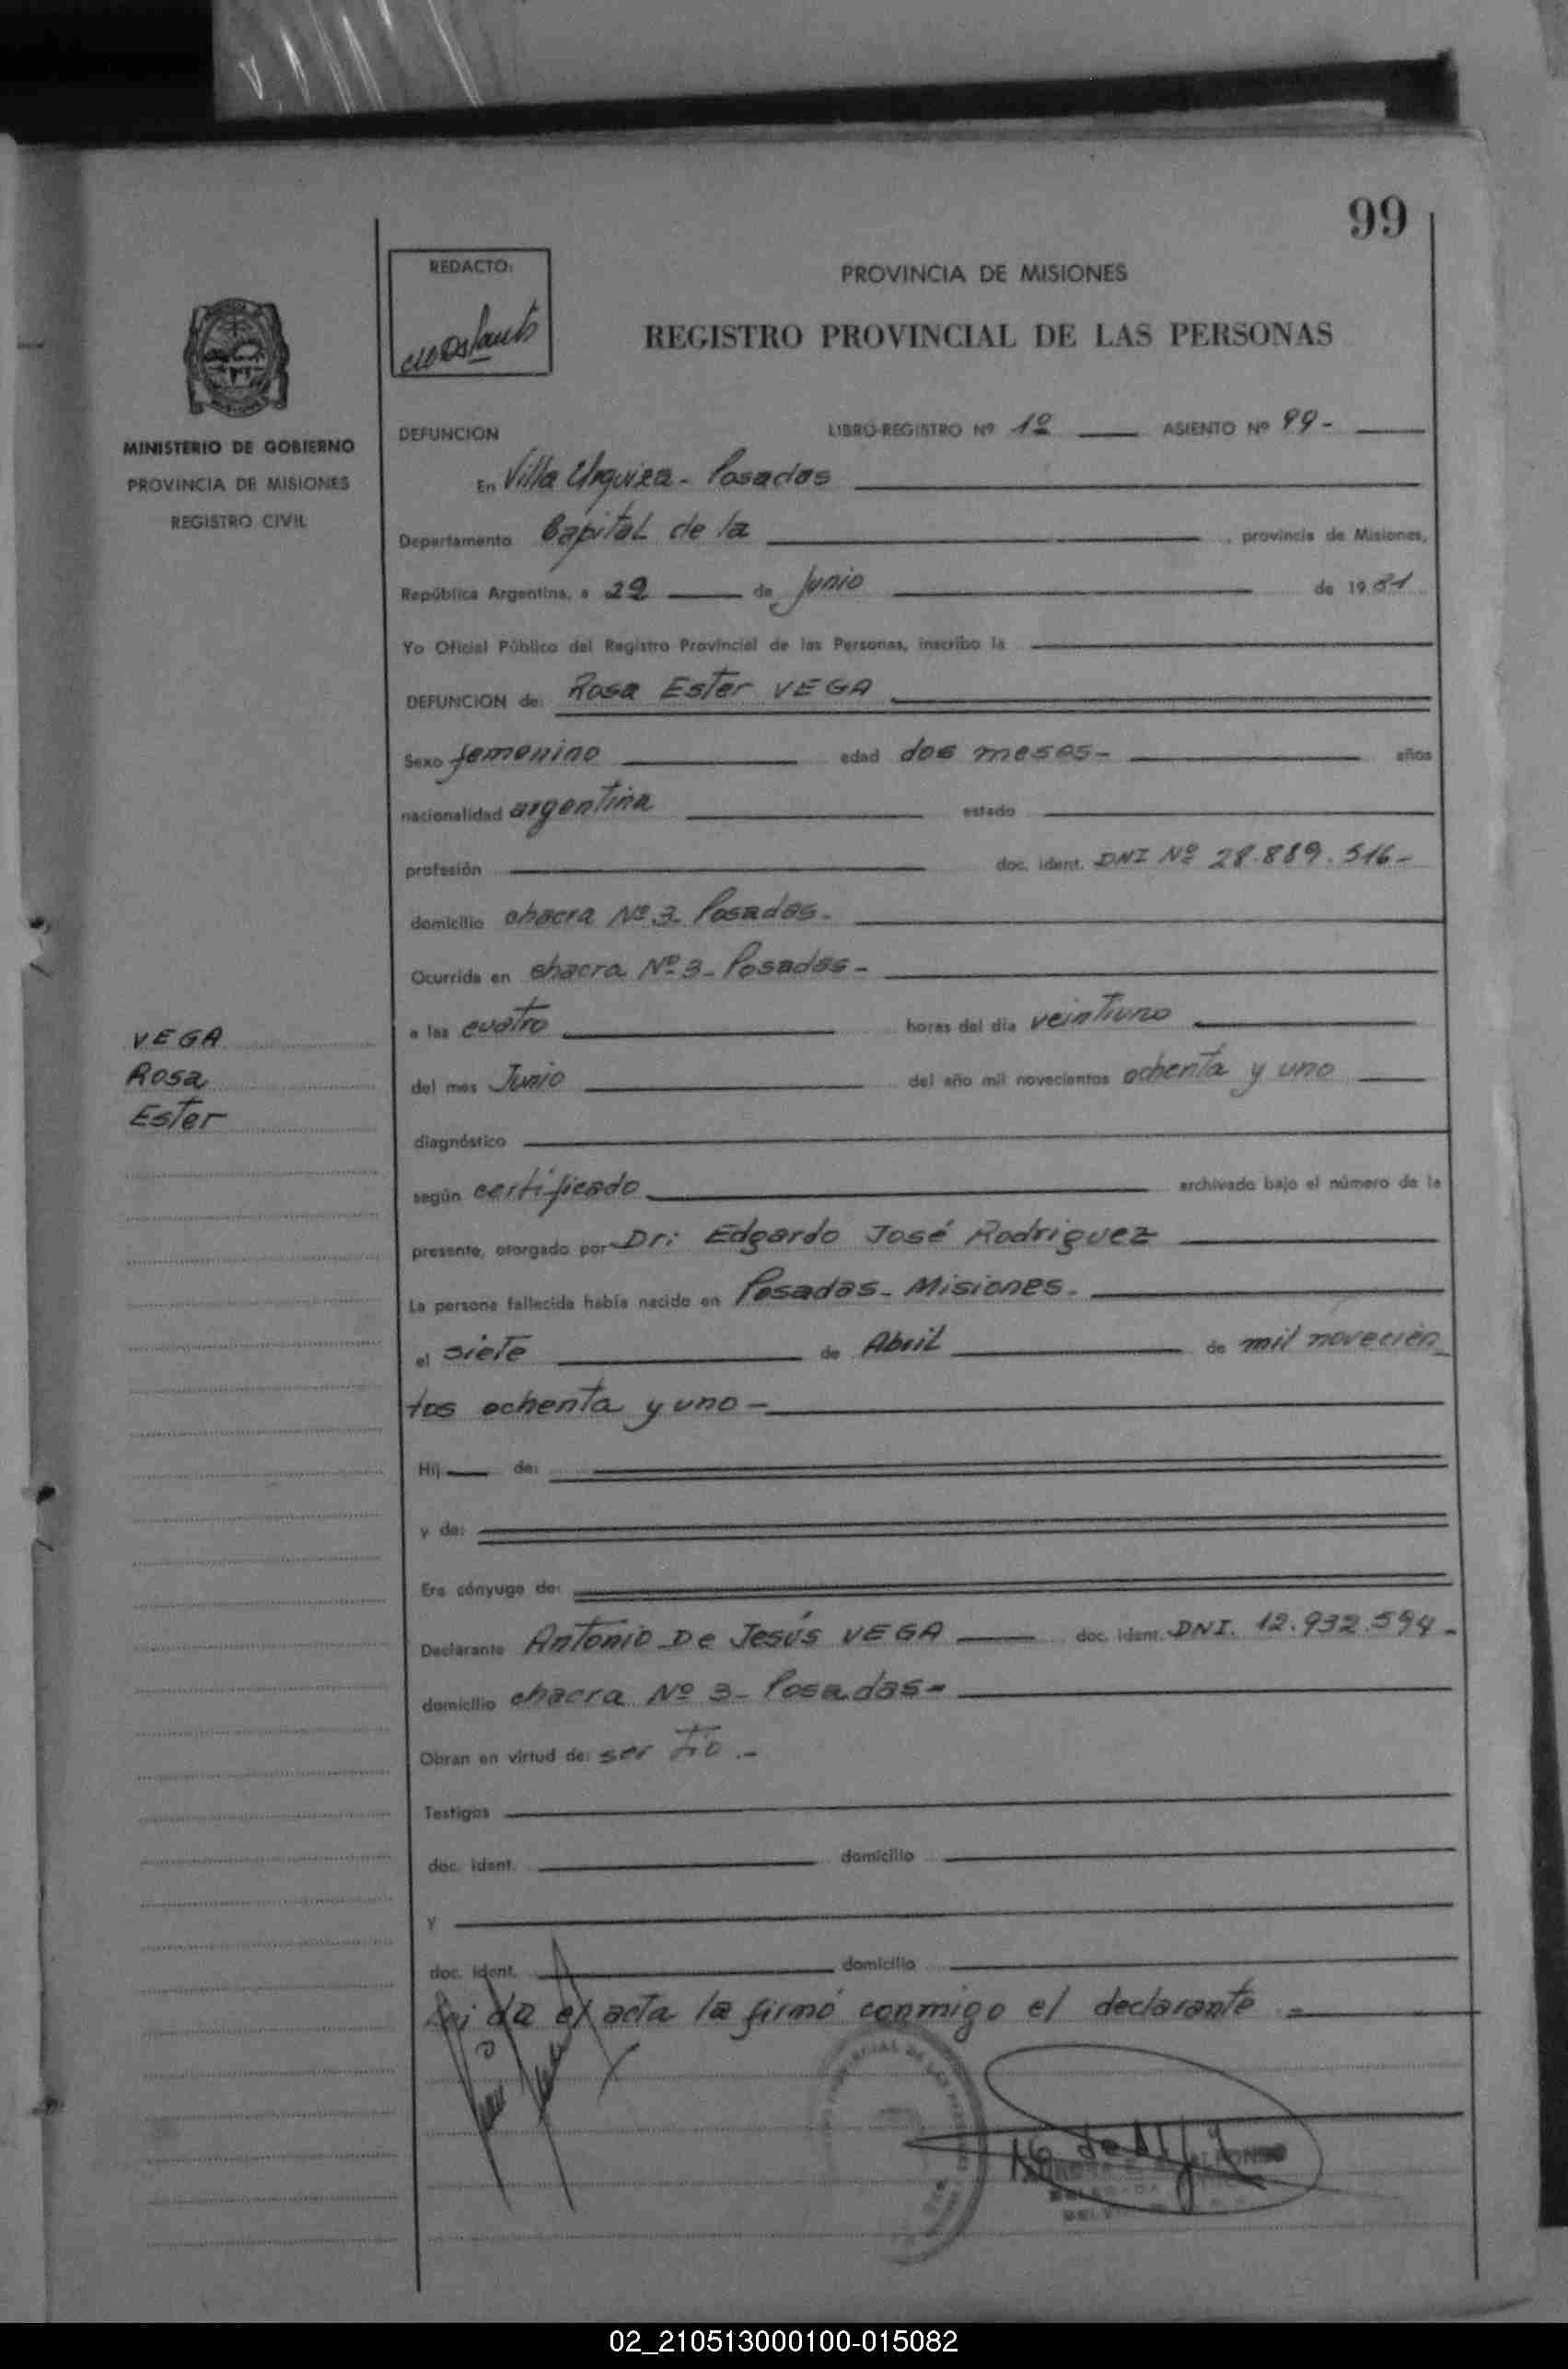 99
REDACTO:
PROVINCIA DE MISIONES
REGISTRO PROVINCIAL DE LAS PERSONAS
MINISTERIO DE GOBIERNO
PROVINCIA DE MISIONES
REGISTRO CIVIL
DEFUNCION LIBRO-REGISTRO Nº 1º ASIENTO Nº 99-
En Villa Urquiza - Posadas
Departamento Capital de la , provincia de Misiones,
República Argentina, a 22 de Junio de 1981
Yo Oficial Público del Registro Provincial de las Personas, inscribo la
DEFUNCION de: Rosa Ester VEGA
Sexo femenino edad dos meses- años
nacionalidad argentina estado
profesión doc. ident. DNI Nº 28.889.516-
domicilio chacra Nº 3- Posadas.
Ocurrida en chacra Nº 3- Posadas-
a las cuatro horas del día veintiuno
VEGA
Rosa
Ester
del mes Junio del año mil novecientos ochenta y uno
diagnóstico
según certificado archivado bajo el número de la
presente, otorgado por Dr: Edgardo José Rodriguez
La persona fallecida había nacido en Posadas- Misiones.
el siete de Abril de mil novecien
tos ochenta y uno-
Hij de:
y de:
Era cónyuge de:
Declarante Antonio De Jesús VEGA doc. ident. DNI. 12.932.594-
domicilio chacra Nº 3- Posadas-
Obran en virtud de: ser tio.-
Testigos
doc. ident. domicilio
y
doc. ident. domicilio
Leida el acta la firmó conmigo el declarante
02_210513000100-015082